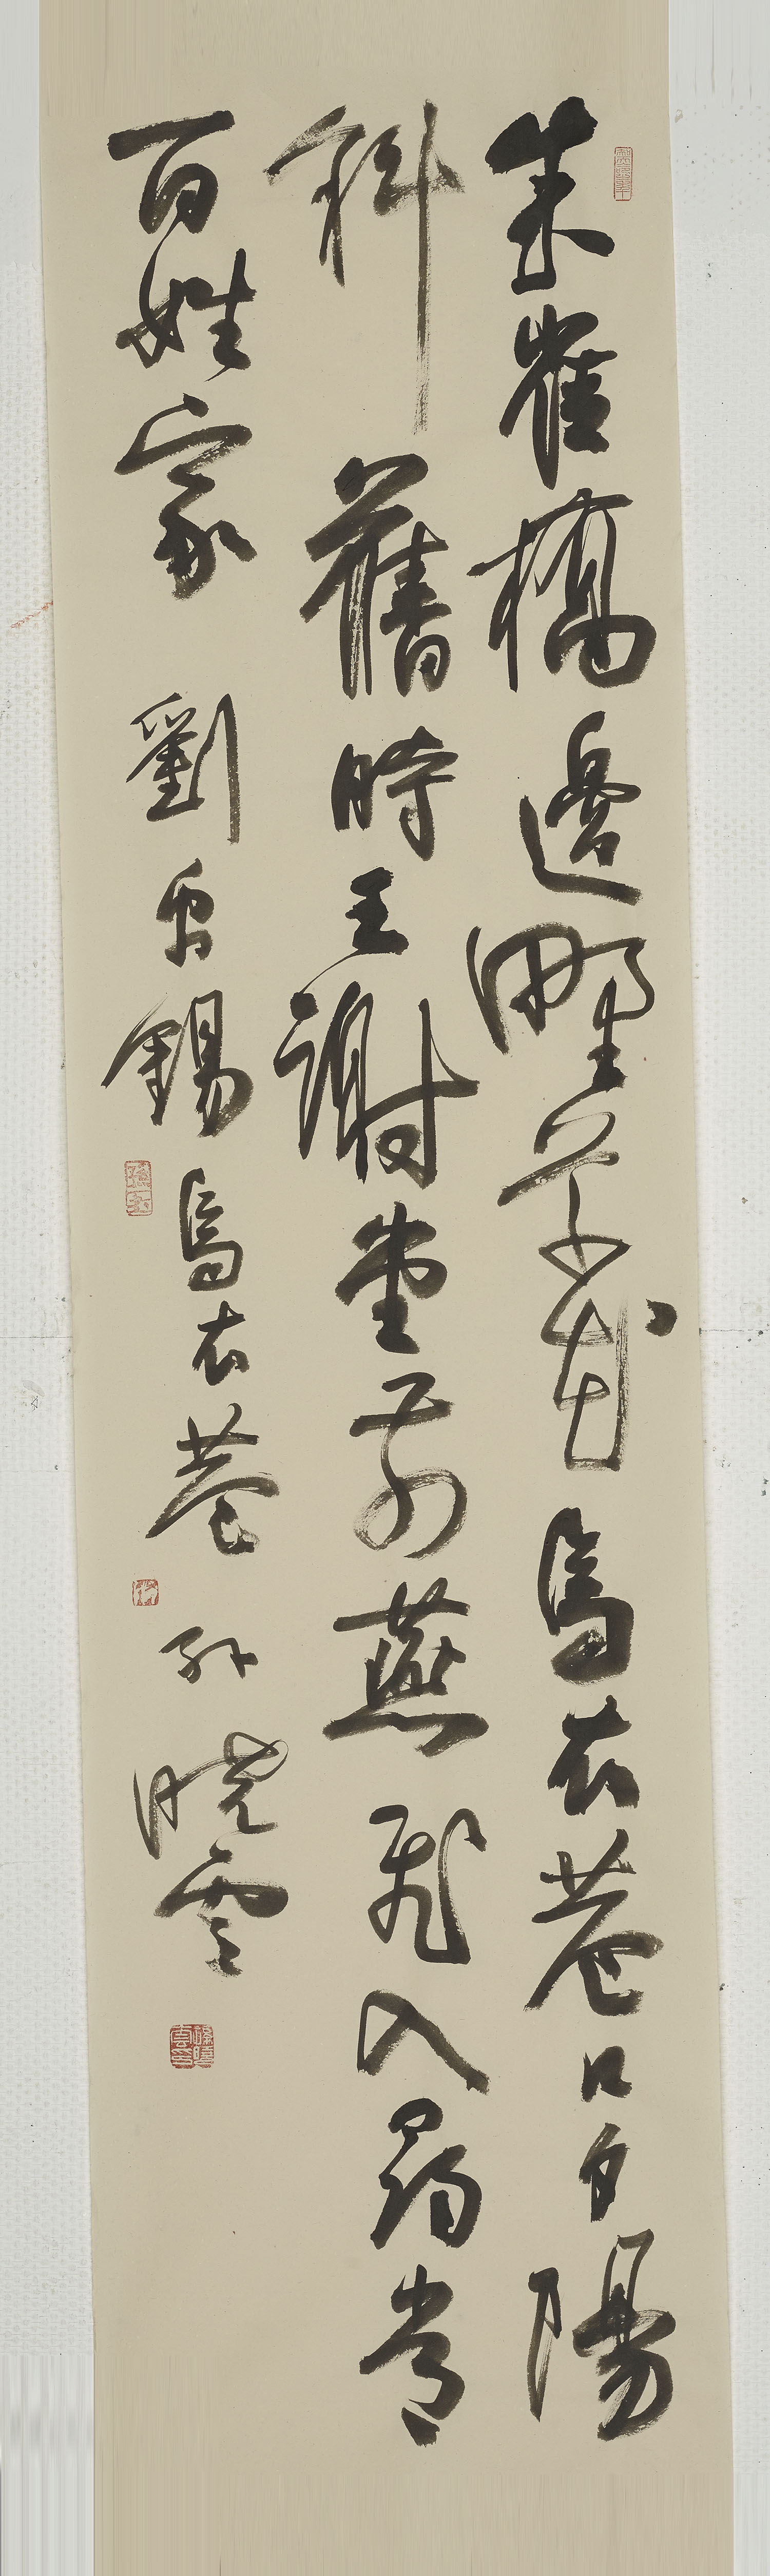 朱雀橋邊野草花烏衣巷口夕陽
斜舊時王謝堂前燕飛入尋常
百姓家 劉禹錫烏衣巷 孫曉雲
孫曉雲印